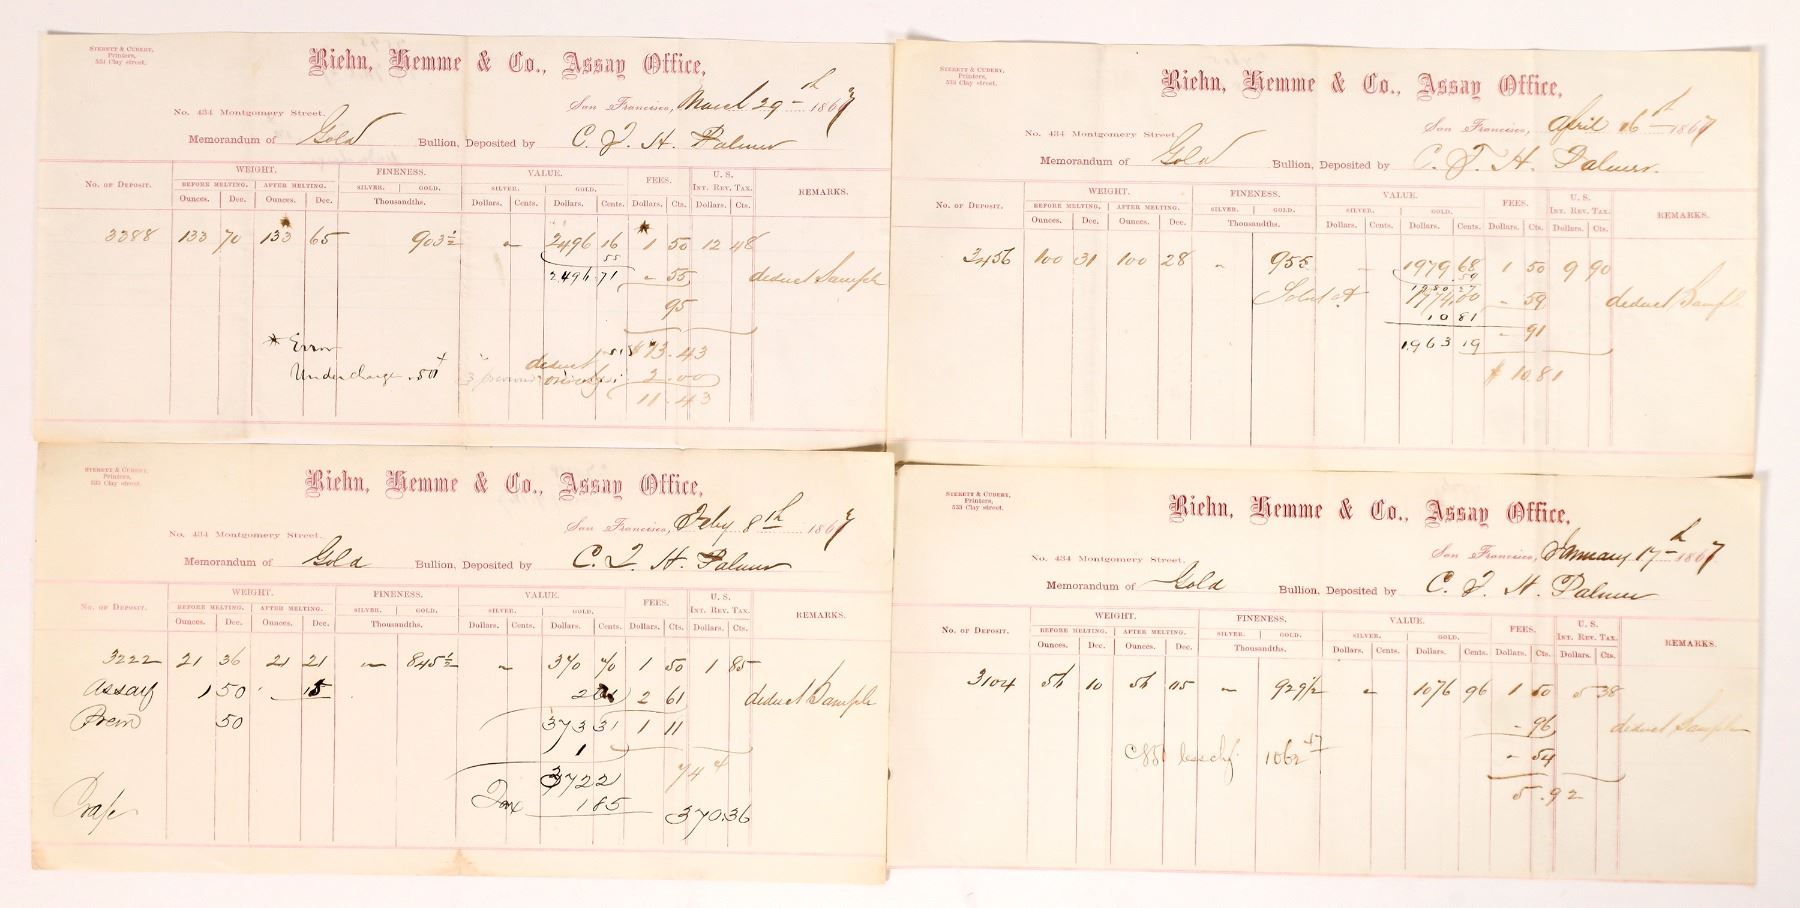 STERETT & CUBERY,
Printers,
533 Clay street.
Riehn, Hemme & Co., Assay Office,
San Francisco, March 29th 1867
No. 434 Montgomery Street.
Memorandum of Gold Bullion, Deposited by C. T. H. Palmer
No. of Deposit. WEIGHT. FINENESS. VALUE. FEES. U. S. Int. Rev. Tax. REMARKS.
BEFORE MELTING. AFTER MELTING. SILVER. GOLD. SILVER. GOLD.
Ounces. Dec. Ounces. Dec. Thousandths. Dollars. Cents. Dollars. Cents. Dollars. Cts. Dollars. Cts.
3388 133 70 133 65 903½ " 2496 16 1 50 12 48
55
2496 71 - 55 deduct Sample
95
* Error $13.43
Undercharge .50 deduct 2.00
11.43
STERETT & CUBERY,
Printers,
533 Clay street.
Riehn, Hemme & Co., Assay Office,
San Francisco, April 16th 1867
No. 434 Montgomery Street.
Memorandum of Gold Bullion, Deposited by C. T. H. Palmer.
No. of Deposit. WEIGHT. FINENESS. VALUE. FEES. U. S. Int. Rev. Tax. REMARKS.
BEFORE MELTING. AFTER MELTING. SILVER. GOLD. SILVER. GOLD.
Ounces. Dec. Ounces. Dec. Thousandths. Dollars. Cents. Dollars. Cents. Dollars. Cts. Dollars. Cts.
3456 100 31 100 28 " 955 - 1979 68 1 50 9 90
59
Sold at 1974.00 - 59 deduct Sample
10 81 - 91
1963 19
$ 10.81
STERETT & CUBERY,
Printers,
533 Clay street.
Riehn, Hemme & Co., Assay Office,
San Francisco, Feby 8th 1867
No. 434 Montgomery Street.
Memorandum of Gold Bullion, Deposited by C. T. H. Palmer
No. of Deposit. WEIGHT. FINENESS. VALUE. FEES. U. S. Int. Rev. Tax. REMARKS.
BEFORE MELTING. AFTER MELTING. SILVER. GOLD. SILVER. GOLD.
Ounces. Dec. Ounces. Dec. Thousandths. Dollars. Cents. Dollars. Cents. Dollars. Cts. Dollars. Cts.
3222 21 36 21 21 " 845½ " 370 70 1 50 1 85
Assay 1 50 - 15 2 61 2 61 deduct Sample
Prem 50 373 31 1 11
1
3722 74
Tax 185 370.36
STERETT & CUBERY,
Printers,
533 Clay street.
Riehn, Hemme & Co., Assay Office,
San Francisco, January 17th 1867
No. 434 Montgomery Street.
Memorandum of Gold Bullion, Deposited by C. T. H. Palmer
No. of Deposit. WEIGHT. FINENESS. VALUE. FEES. U. S. Int. Rev. Tax. REMARKS.
BEFORE MELTING. AFTER MELTING. SILVER. GOLD. SILVER. GOLD.
Ounces. Dec. Ounces. Dec. Thousandths. Dollars. Cents. Dollars. Cents. Dollars. Cts. Dollars. Cts.
3104 54 10 54 05 " 929½ " 1076 96 1 50 5 38
- 96 deduct Sample
less chg. 1062 57 - 54
5.92